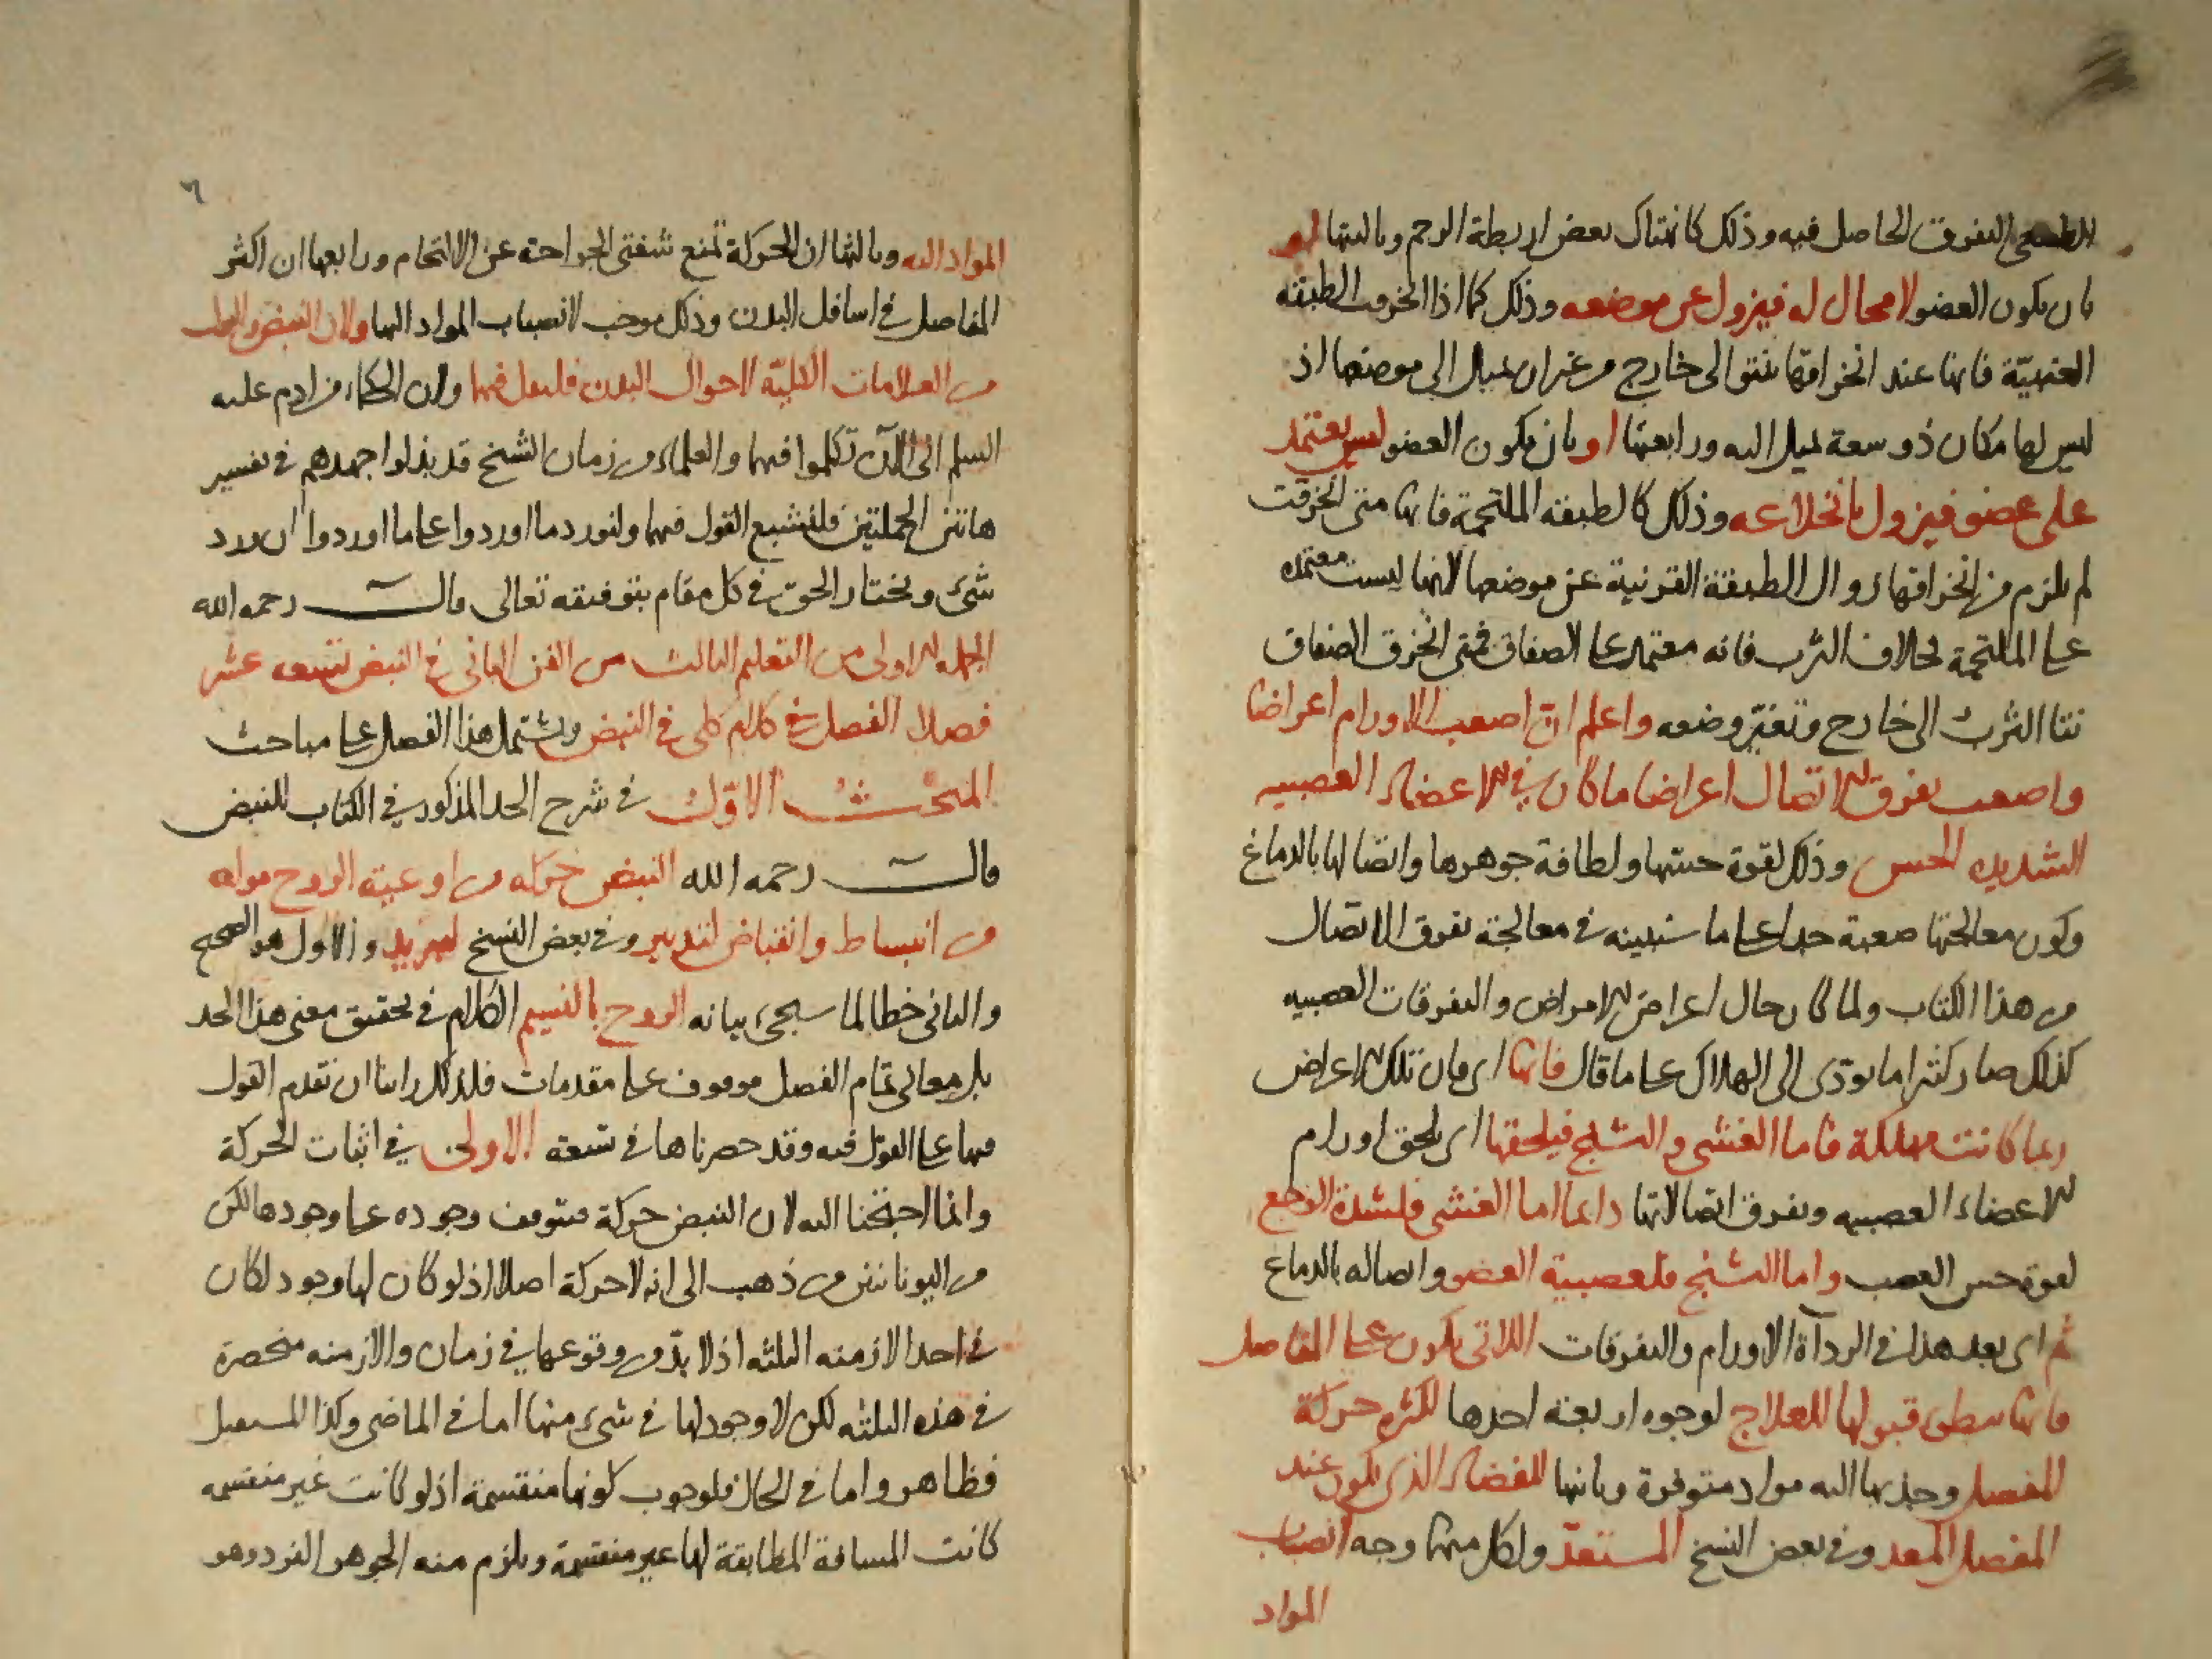 التفرق الحاصل فيه وذلك كانهتاك بعض اربطة الرحم وثالثتها او
بان يكون العضو لا محال له فيزول عن موضعه وذلك كما اذا انخرقت الطبقة
العنبيّة فانها عند انخراقها تنتو الى خارج من غير ان تميل الى موضعها اذ
ليس لها مكان ذو سعة تميل اليه ورابعتها او بان يكون العضو ليس يعتمد
على عضو فيزول بانخلاعه وذلك كالطبقة الملتحمة فانها متى انخرقت
لم يلزم من انخراقها زوال الطبقة القرنية عن موضعها لانها ليست معتمدة
على الملتحمة بخلاف الثرب فانه معتمد على الصفاق فمتى انخرق الصفاق
نتا الثرب الى خارج وتغيّر وضعه واعلم انّ اصعب الاورام اعراضا
واصعب تفرق الاتصال اعراضا ما كان في الاعضاء العصبيه
الشديده الحس وذلك لقوة حسّها ولطافة جوهرها واتصالها بالدماغ
وكون معالجتها صعبة جدا على ما سنبينه في معالجة تفرق الاتصال
من هذا الكتاب ولما كان حال اعراض الامراض والتفرقات العصبيه
كذلك صار كثيرا ما يودّى الى الهلاك على ما قال فانها اى فان تلك الاعراض
ربما كانت مهلكة فاما الغشى والتشنج فيلحقها اى يلحق اورام
الاعضاء العصبيه وتفرق اتصالاتها دايما اما الغشى فلشدة الوجع
لقوة حس العصب واما التشنج فلعصبية العضو واتصاله بالدماغ
ثم اى بعد هذا في الرداءة الاورام والتفرقات اللاتى يكون على المفاصل
فانها بطى قبولها للعلاج لوجوه اربعة احدها لكثره حركة
المفصل وجذبها اليه مواد متوفرة وثانيها للفضاء الذى يكون عند
المفصل المعد وفى بعض النسخ المستعدّ ولكل منهما وجه انصباب
المواد
٦
المواد اليه وثالثها ان الحركة تمنع شفتى الجراحة عن الالتحام ورابعها ان اكثر
المفاصل في اسافل البدن وذلك موجب لانصباب المواد اليها ولان النبض والبول
من العلامات الكليّة لاحوال البدن فلنقل فيها ولان الحكماء من ادم عليه
السلم الى الآن تكلموا فيهما والعلماء من زمان الشيخ قد بذلوا جهدهم في تفسير
هاتين الجملتين فلنشبع القول فيهما ولنورد ما اوردوا على ما اوردوا ان ورد
شىء ونختار الحق في كل مقام بتوفيقه تعالى قال رحمه الله
الجمله الاولى من التعليم الثالث من الفن الثانى في النبض تسعه عشر
فصلا الفصل في كلام كلى في النبض ويشتمل هذا الفصل على مباحث
المبحث الاوّل في شرح الحد المذكور في الكتاب للنبض
قال رحمه الله النبض حركه من اوعية الروح مولفه
من انبساط وانقباض لتدبير وفى بعض النسخ لتبريد والاول هو الصحيح
والثانى خطا لما سيجىء بيانه الروح بالنسيم الكلام في تحقيق معنى هذا الحد
بل معانى تمام الفصل موقوف على مقدمات فلذلك راينا ان نقدم القول
فيها على القول فيه وقد حصرناها في تسعة الاولى في اثبات الحركة
وانما احتجنا اليه لان النبض حركة فيتوقف وجوده على وجودها لكن
من اليونانيين من ذهب الى انه لا حركة اصلا اذ لو كان لها وجود لكان
في احد الازمنه الثلثه اذ لا بدّ من وقوعها في زمان والازمنه منحصرة
في هذه الثلثه لكن لا وجود لها في شىء منها اما في الماضى وكذا المستقبل
فظاهر واما في الحال فلوجوب كونها منقسمة اذ لو كانت غير منقسمه
كانت المسافة المطابقة لها غير منقسمة ويلزم منه الجوهر الفرد وهو